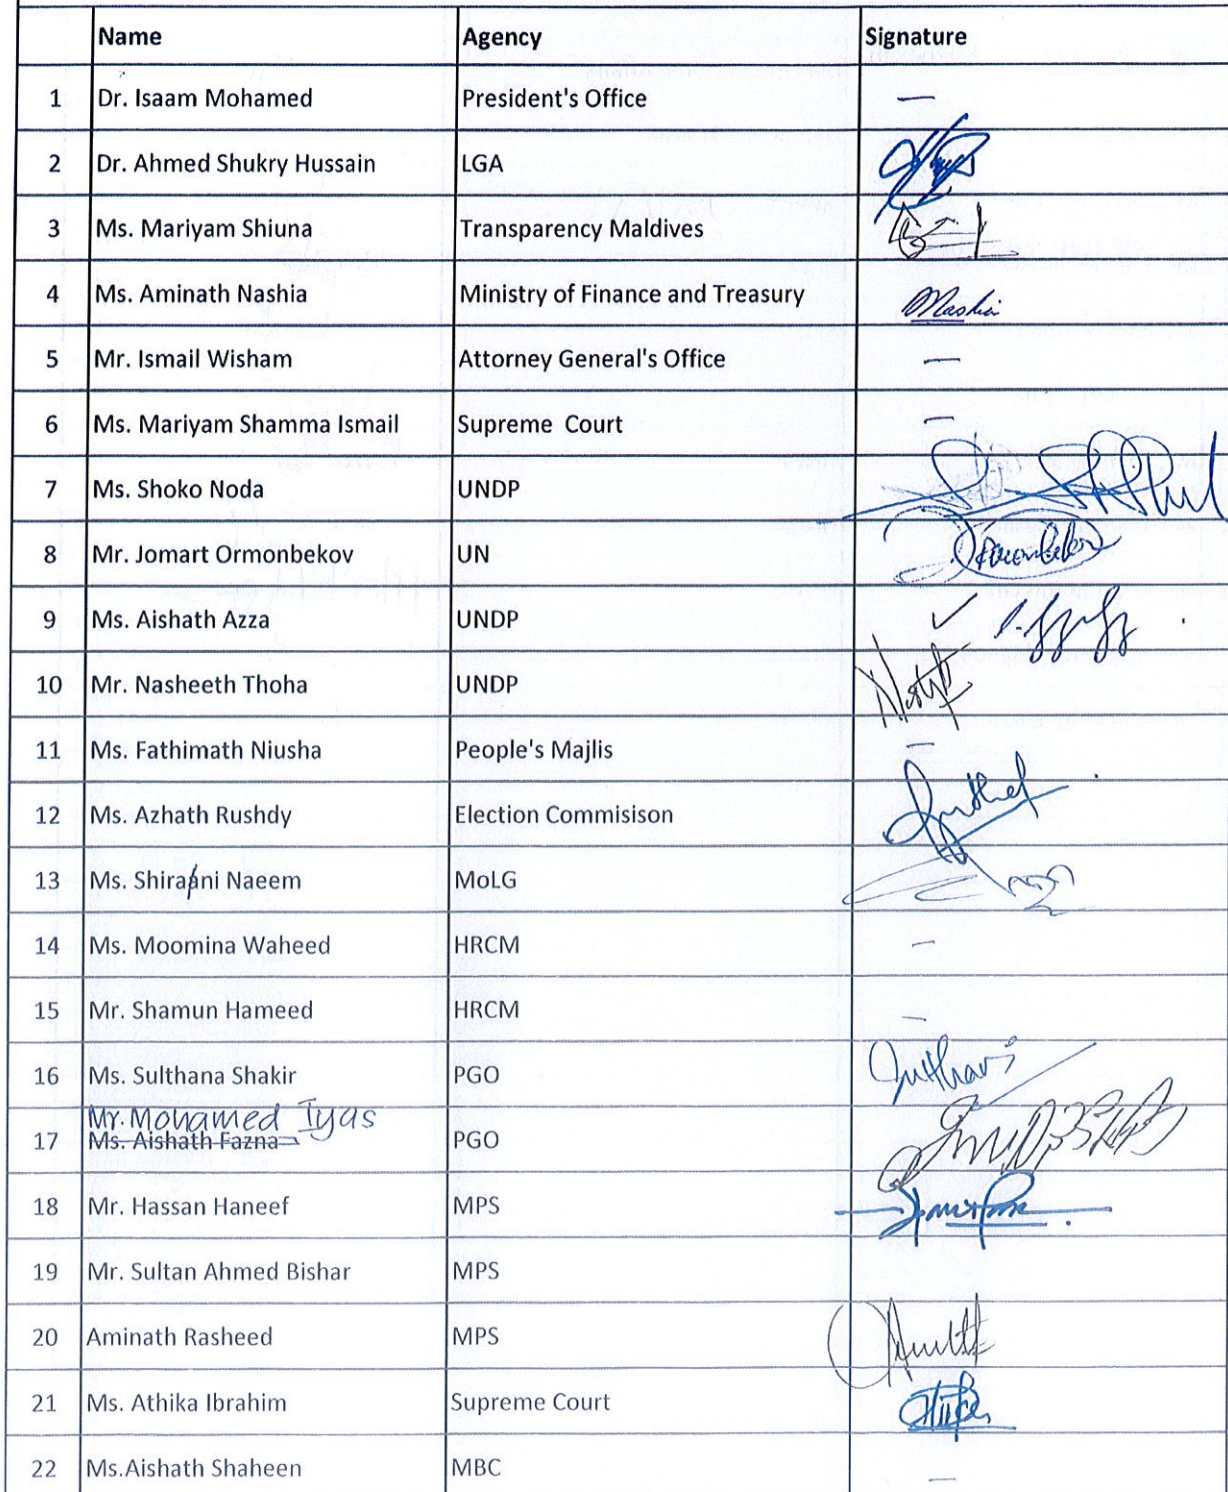 Name Agency Signature
1 Dr. Isaam Mohamed President's Office —
2 Dr. Ahmed Shukry Hussain LGA
3 Ms. Mariyam Shiuna Transparency Maldives
4 Ms. Aminath Nashia Ministry of Finance and Treasury Nashia
5 Mr. Ismail Wisham Attorney General's Office —
6 Ms. Mariyam Shamma Ismail Supreme Court —
7 Ms. Shoko Noda UNDP
8 Mr. Jomart Ormonbekov UN
9 Ms. Aishath Azza UNDP ✓
10 Mr. Nasheeth Thoha UNDP
11 Ms. Fathimath Niusha People's Majlis —
12 Ms. Azhath Rushdy Election Commisison
13 Ms. Shiraani Naeem MoLG
14 Ms. Moomina Waheed HRCM —
15 Mr. Shamun Hameed HRCM —
16 Ms. Sulthana Shakir PGO
Mr. Mohamed Iyas
17 Ms. Aishath Fazna PGO
18 Mr. Hassan Haneef MPS
19 Mr. Sultan Ahmed Bishar MPS
20 Aminath Rasheed MPS
21 Ms. Athika Ibrahim Supreme Court
22 Ms.Aishath Shaheen MBC —